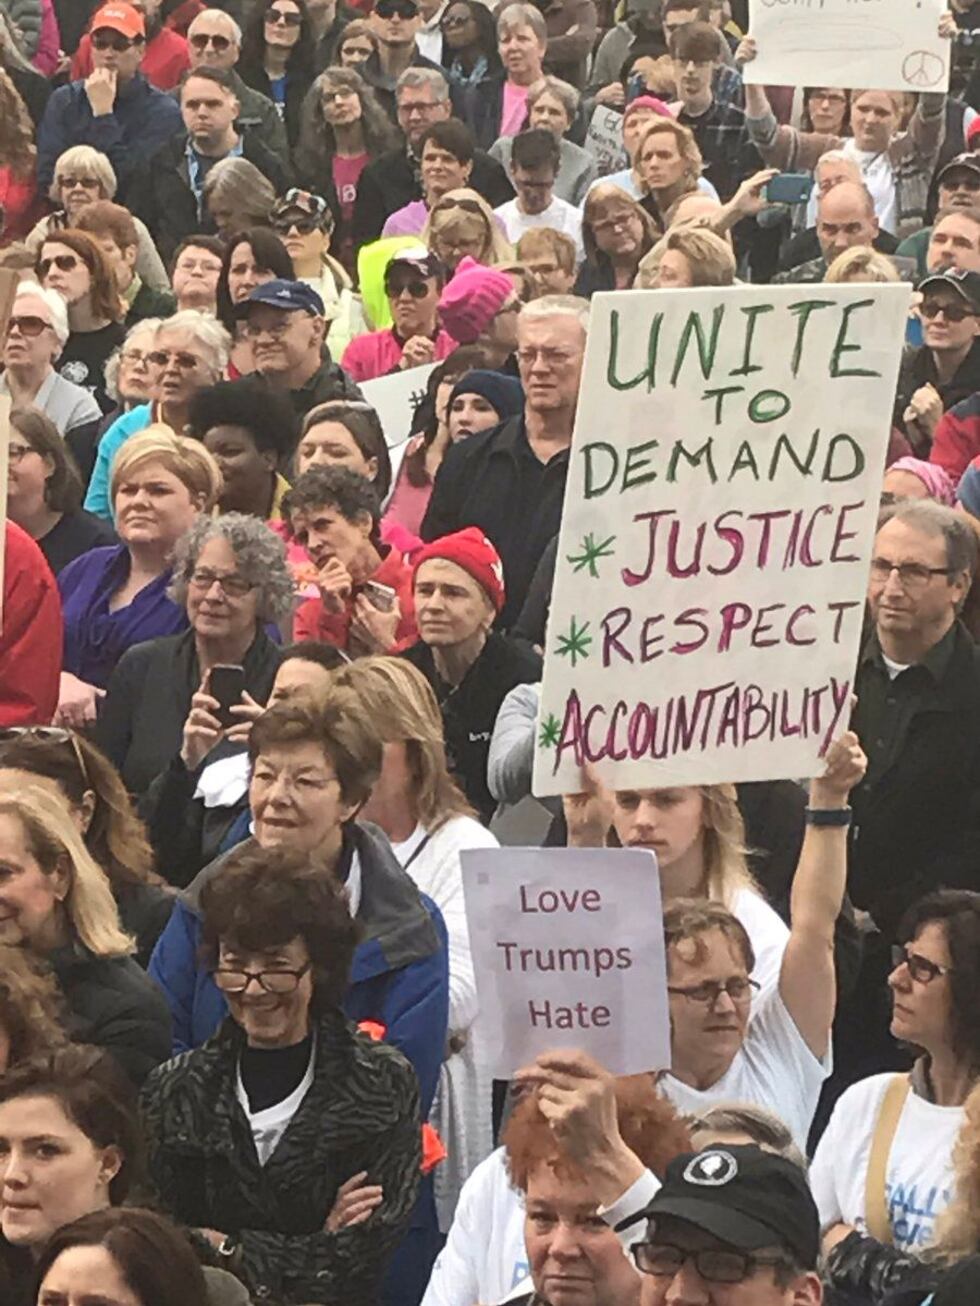 UNITE
TO
DEMAND
* JUSTICE
* RESPECT
* ACCOUNTABILITY
Love
Trumps
Hate